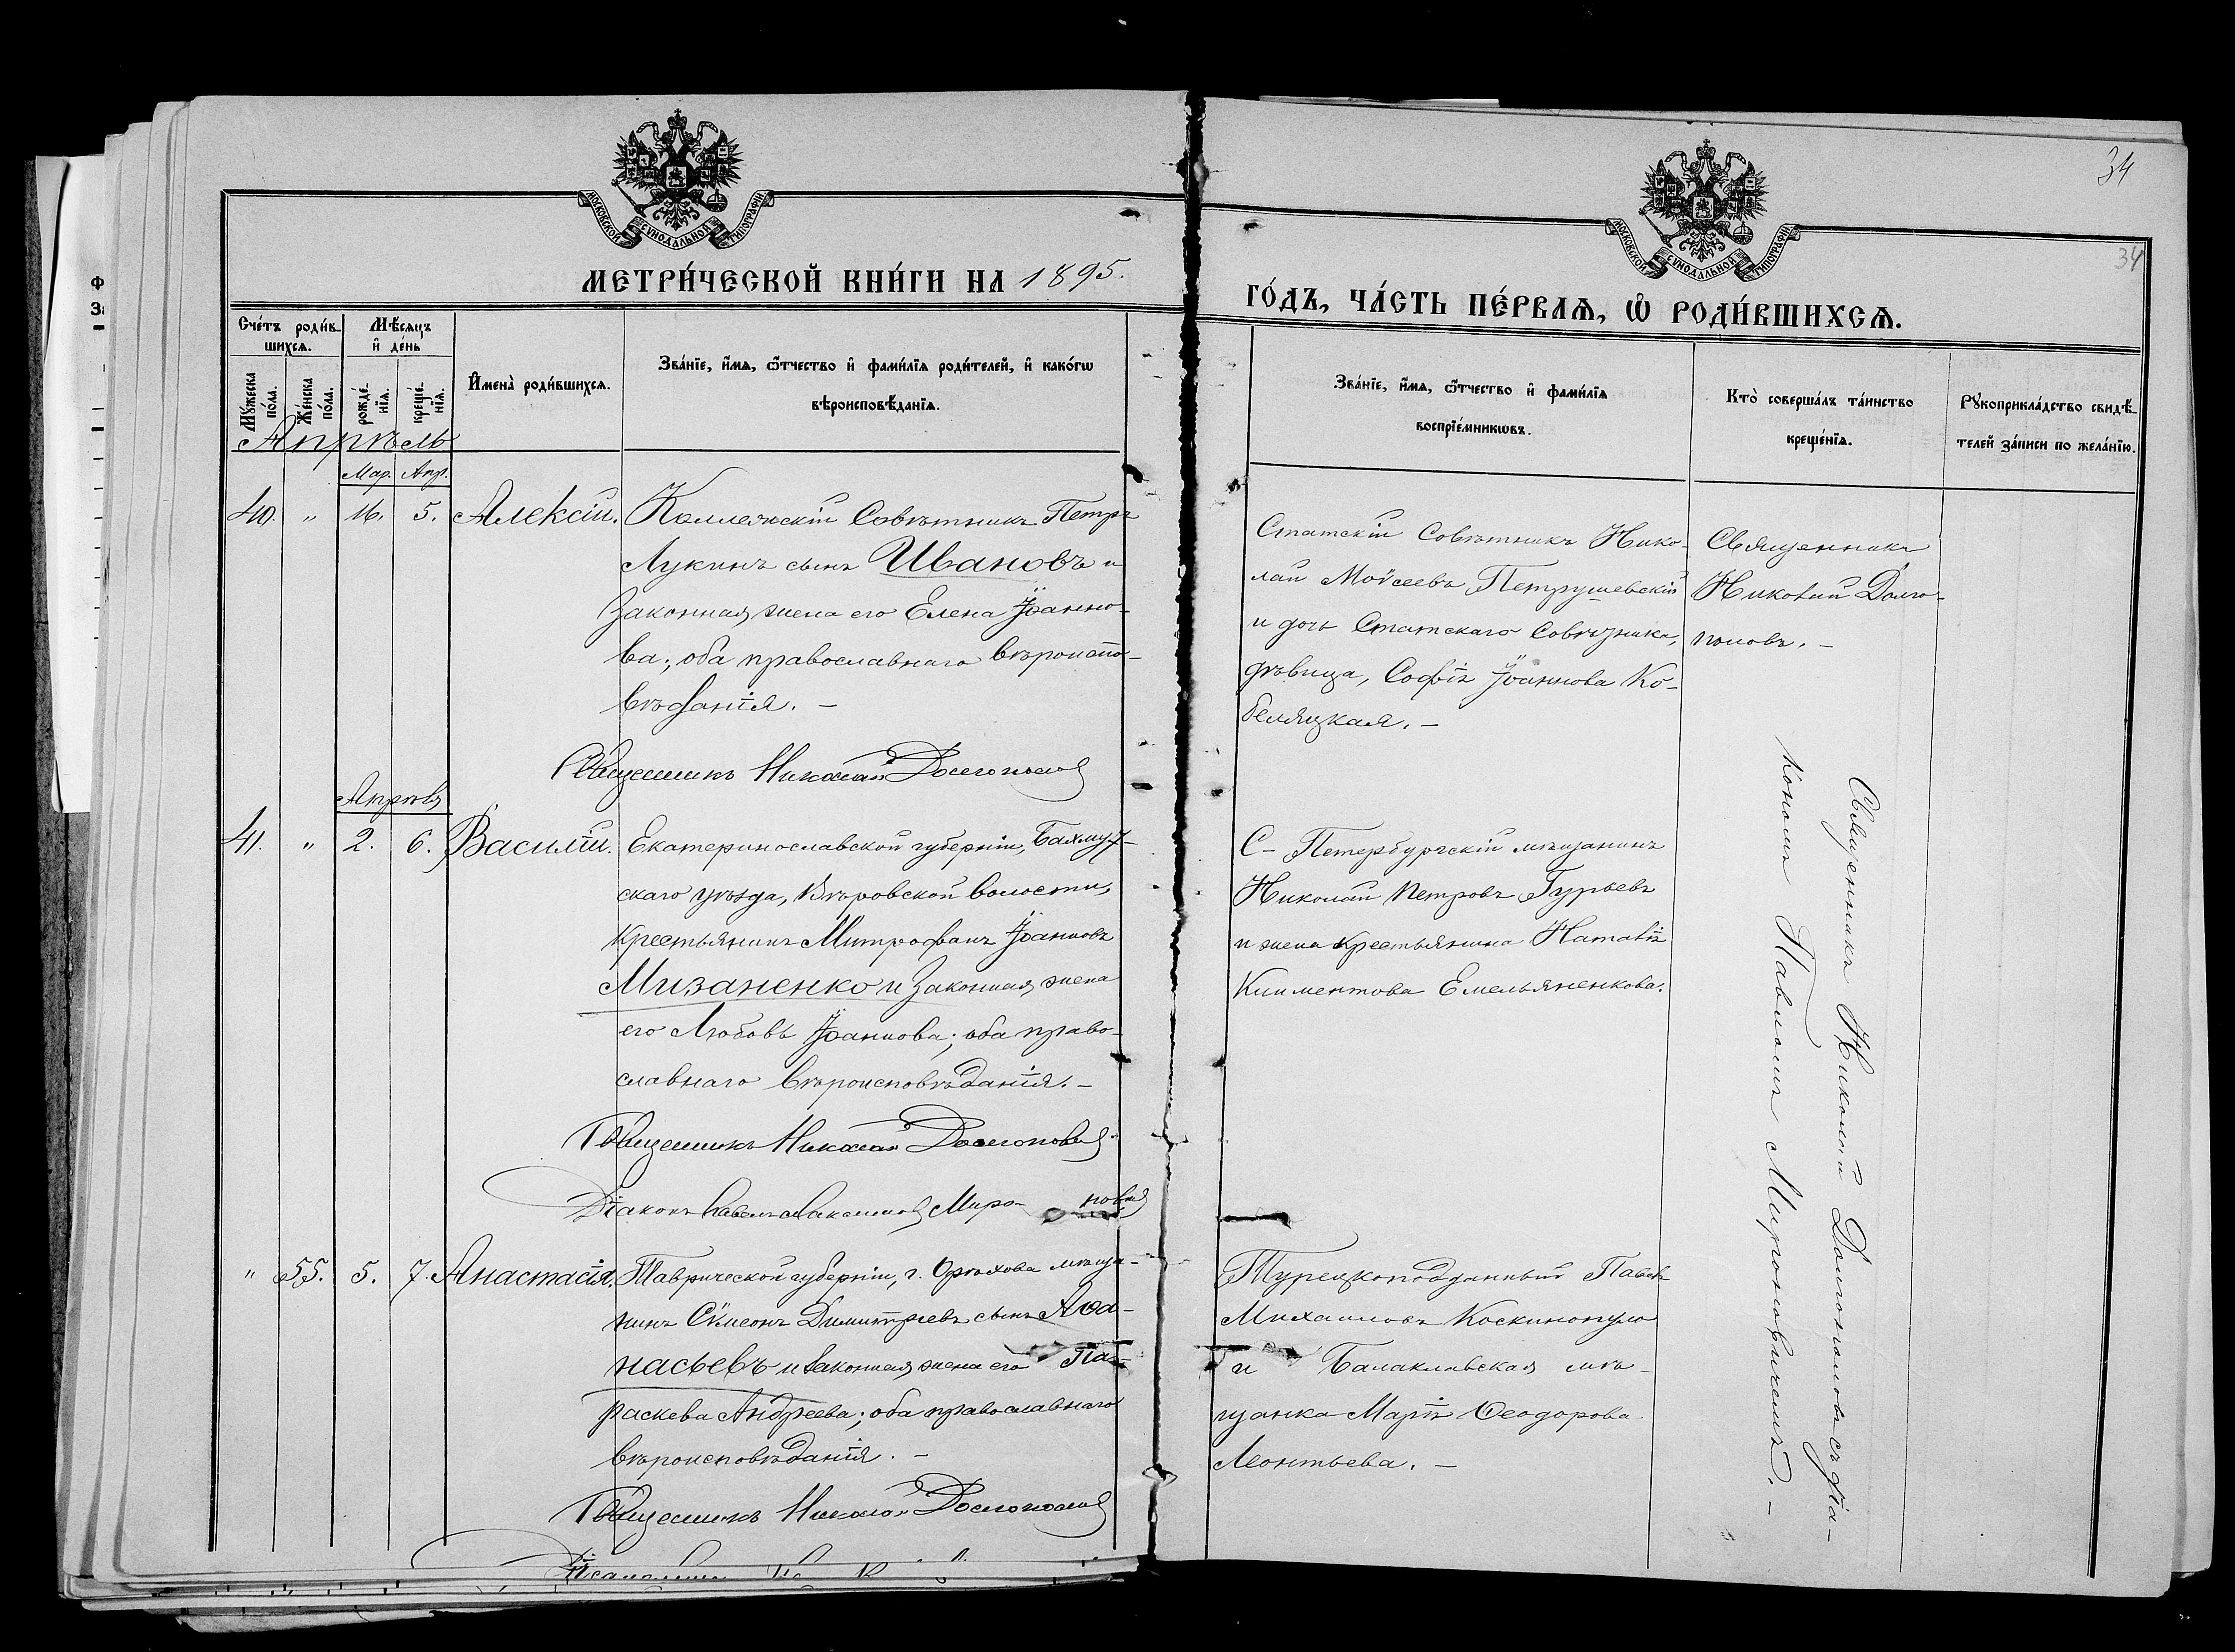 34
34
МОСКОВСКОЙ СѴНОДАЛЬНОЙ ТИПОГРАФІИ
МОСКОВСКОЙ СѴНОДАЛЬНОЙ ТИПОГРАФІИ
МЕТРИ́ЧЕСКОЙ КНИ́ГИ НА 1895.
ГО́ДЪ, ЧА́СТЬ ПЕ́РВАЯ, Ѽ РОДИ́ВШИХСЯ.
Сче́тъ роди́в-
шихся.
Мѣ́сяцъ
и҆ де́нь
Мꙋ́жеска
по́ла.
Же́нска
по́ла.
рожде́-
нїя.
креще́-
нїя.
И҆мена̀ роди́вшихся.
Зва́нїе, и҆́мя, ѻ҆́тчество и҆ фами́лїя роди́телей, и҆ како́гѡ
вѣроисповѣ́данїя.
Зва́нїе, и҆́мя, ѻ҆́тчество и҆ фами́лїя
воспрїе́мникѡвъ.
Кто̀ соверша́лъ та́инство
креще́нїя.
Рꙋкоприкла́дство свидѣ́-
телей за́писи по жела́нїю.
Апрѣль
Мар. Апр.
40. „ 16. 5. Алексій. Коллежскій Совѣтникъ Петръ
Лукинъ сынъ Ивановъ и
законная жена его Елена Іоанно-
ва; оба православнаго вѣроиспо-
вѣданія. –
Священникъ Николай Долгополов
Статскій Совѣтникъ Нико-
лай Моѵсеевъ Петрушевскій
и дочь Статскаго Совѣтника,
дѣвица, Софія Іоаннова Ко-
беляцкая. –
Священникъ
Николай Долго-
половъ. –
Апрѣль
41. „ 2. 6. Василій. Екатеринославской губерніи, Бахмут-
скаго уѣзда, Вѣровской волости,
крестьянинъ Митрофанъ Іоанновъ
Мизаненко и законная жена
его Любовь Іоаннова; оба право-
славнаго вѣроисповѣданія. –
Священникъ Николай Долгополов
Діаконъ Павелъ Миро-новичъ
С-Петербургскій мѣщанинъ
Николай Петровъ Гурьевъ
и жена крестьянина Наталія
Климентова Емельяненкова.
„ 55. 5. 7. Анастасія. Таврической губерніи, г. Орѣхова мѣща-
нинъ Сѵмеонъ Димитріевъ сынъ Аѳа-
насьевъ и законная жена его Па-
раскева Андреева; оба православнаго
вѣроисповѣданія. –
Священникъ Николай Долгополов
Турецкоподданный Павелъ
Михаиловъ Коскинопуло
и Балаклавская мѣ-
щанка Марія Ѳеодорова
Леонтьева. –
Священникъ Николай Долгополовъ съ діа-
кономъ Павломъ Мироновичемъ. –